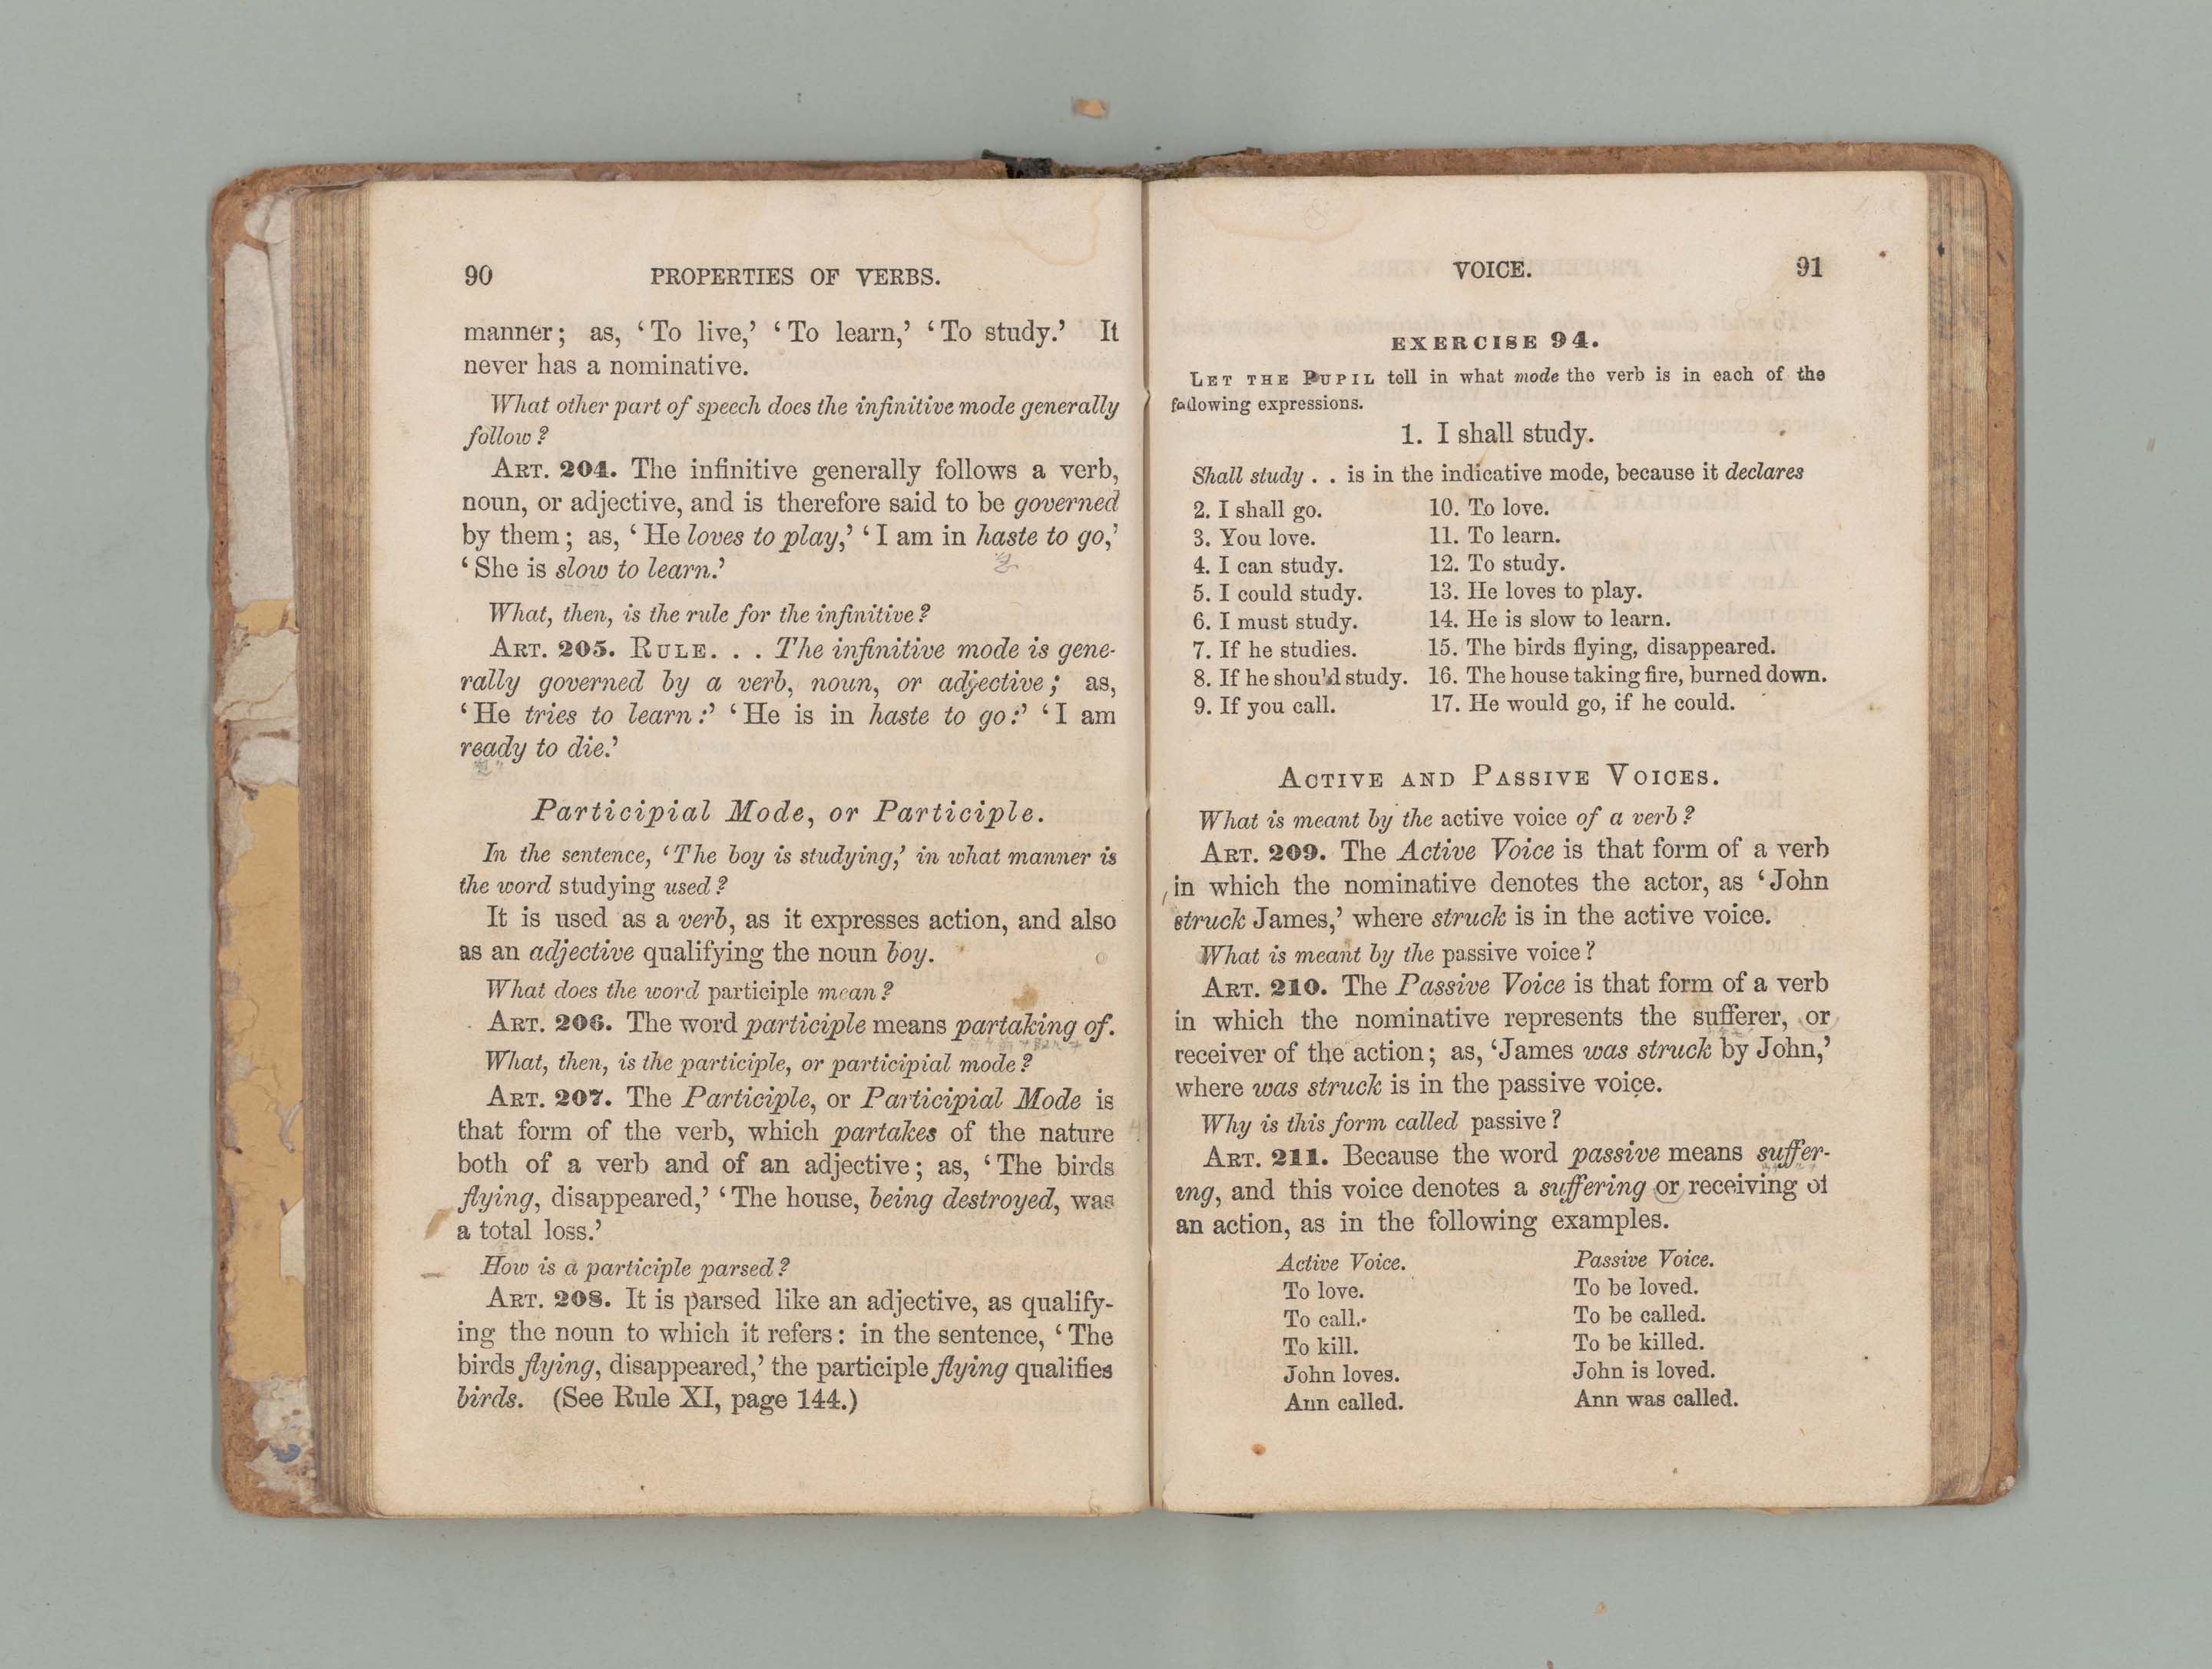 90 PROPERTIES OF VERBS.
manner; as, ‘To live,’ ‘To learn,’ ‘To study.’ It
never has a nominative.
What other part of speech does the infinitive mode generally
follow?
ART. 204. The infinitive generally follows a verb,
noun, or adjective, and is therefore said to be governed
by them; as, ‘He loves to play,’ ‘I am in haste to go,’
‘She is slow to learn.’
What, then, is the rule for the infinitive?
ART. 205. RULE. . . The infinitive mode is gene-
rally governed by a verb, noun, or adjective; as,
‘He tries to learn:’ ‘He is in haste to go:’ ‘I am
ready to die.’
Participial Mode, or Participle.
In the sentence, ‘The boy is studying,’ in what manner is
the word studying used?
It is used as a verb, as it expresses action, and also
as an adjective qualifying the noun boy.
What does the word participle mean?
ART. 206. The word participle means partaking of.
What, then, is the participle, or participial mode?
ART. 207. The Participle, or Participial Mode is
that form of the verb, which partakes of the nature
both of a verb and of an adjective; as, ‘The birds
flying, disappeared,’ ‘The house, being destroyed, was
a total loss.’
How is a participle parsed?
ART. 208. It is parsed like an adjective, as qualify-
ing the noun to which it refers: in the sentence, ‘The
birds flying, disappeared,’ the participle flying qualifies
birds. (See Rule XI, page 144.)
VOICE. 91
EXERCISE 94.
LET THE PUPIL tell in what mode the verb is in each of the
following expressions.
1. I shall study.
Shall study . . is in the indicative mode, because it declares
2. I shall go. 10. To love.
3. You love. 11. To learn.
4. I can study. 12. To study.
5. I could study. 13. He loves to play.
6. I must study. 14. He is slow to learn.
7. If he studies. 15. The birds flying, disappeared.
8. If he should study. 16. The house taking fire, burned down.
9. If you call. 17. He would go, if he could.
ACTIVE AND PASSIVE VOICES.
What is meant by the active voice of a verb?
ART. 209. The Active Voice is that form of a verb
in which the nominative denotes the actor, as ‘John
struck James,’ where struck is in the active voice.
What is meant by the passive voice?
ART. 210. The Passive Voice is that form of a verb
in which the nominative represents the sufferer, or
receiver of the action; as, ‘James was struck by John,’
where was struck is in the passive voice.
Why is this form called passive?
ART. 211. Because the word passive means suffer-
ing, and this voice denotes a suffering or receiving of
an action, as in the following examples.
Active Voice. Passive Voice.
To love. To be loved.
To call. To be called.
To kill. To be killed.
John loves. John is loved.
Ann called. Ann was called.